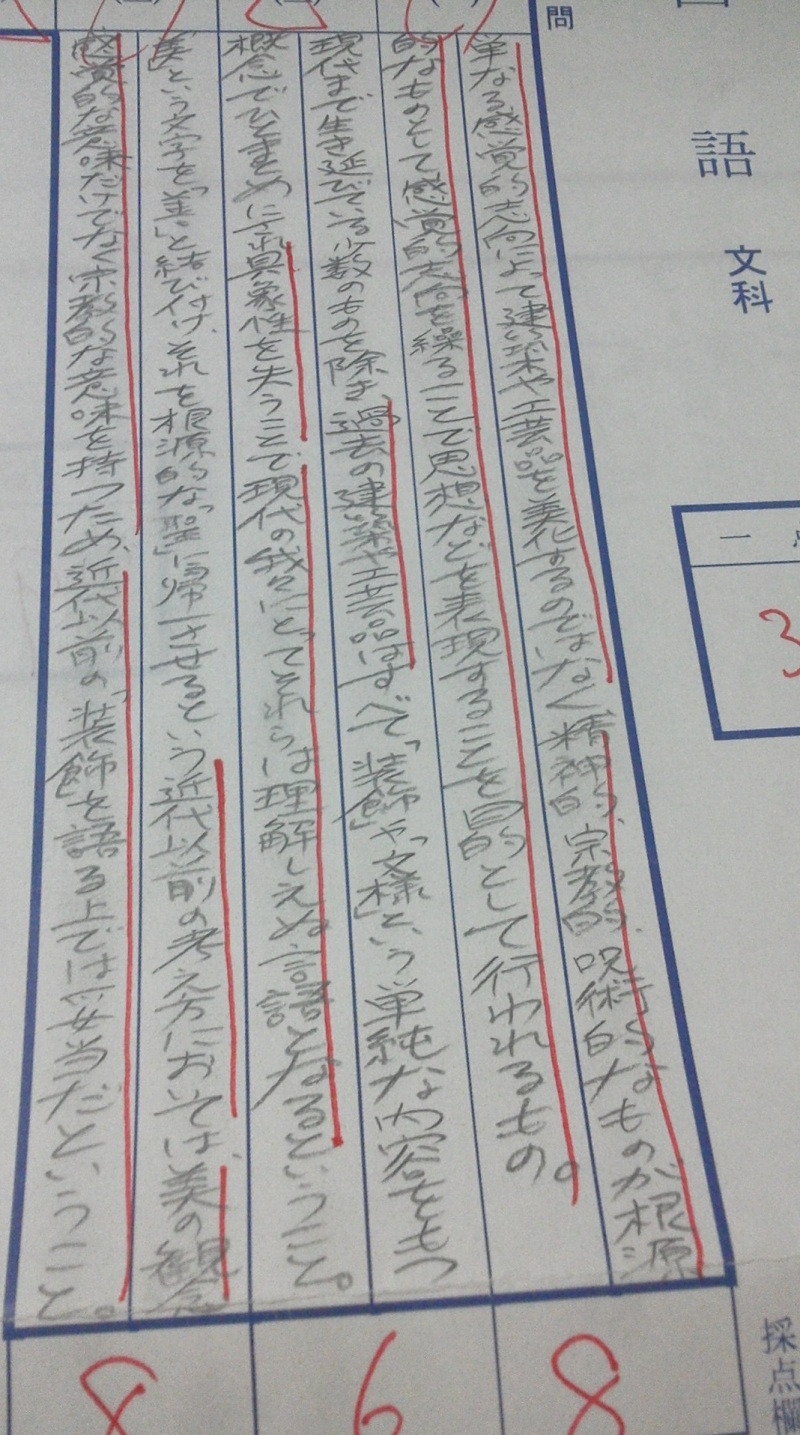 語
文科
問
一
3
単なる感覚的志向によって建築や工芸品を美化するのではなく精神的、宗教的、呪術的なものが根源
的なものとして感覚的志向を繰ることで思想などを表現することを目的として行われるもの。
現代まで生き延びている少数のものを除き、過去の建築や工芸品はすべて「装飾」や「文様」という単純な内容をもつ
概念でひとまとめにされ具象性を失うことで現代の我々にとってそれらは理解しえぬ言語となるということ。
「美」という文字を「善」と結び付け、それを根源的な「聖」に帰一させるという近代以前の考え方においては、美の観念
感覚的な意味だけでなく宗教的な意味を持つため、近代以前の「装飾」を語る上では妥当だということ。
採点欄
8
6
8